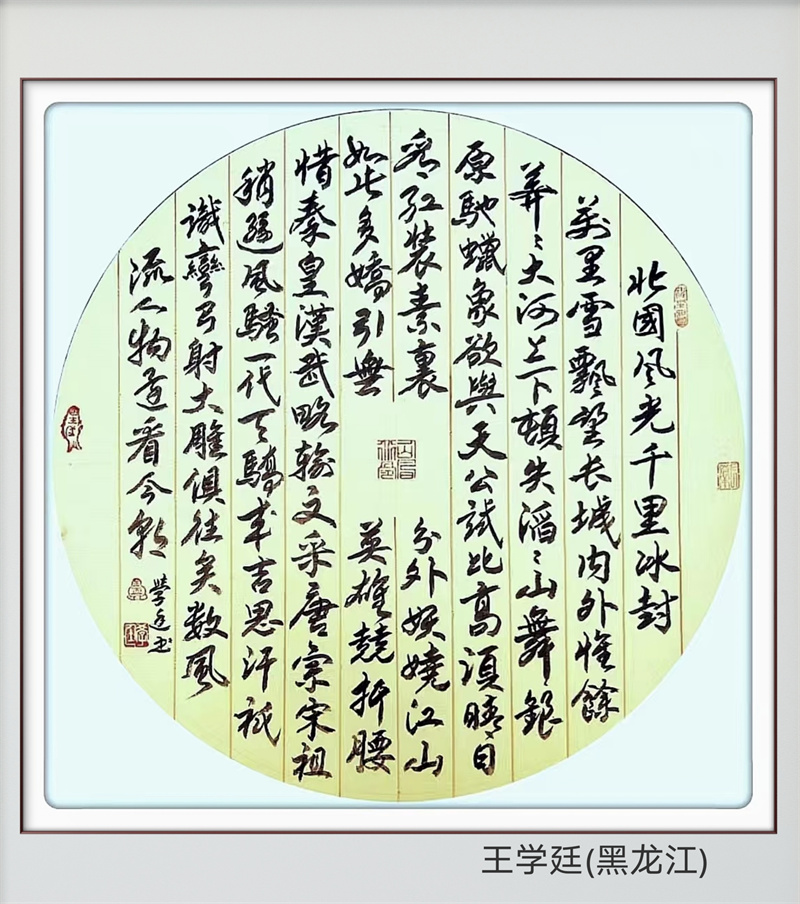 北國风光千里冰封
萬里雪飄望长城内外惟餘
莽々大河上下頓失滔々山舞銀
原馳蠟象欲與天公試比高須晴日
看红装素裹分外妖嬈江山
如此多嬌引無英雄競折腰
惜秦皇漢武略输文采唐宗宋祖
稍逊风騷一代天驕成吉思汗祇
識彎弓射大雕俱往矣数風
流人物还看今朝
學廷书
王学廷(黑龙江)